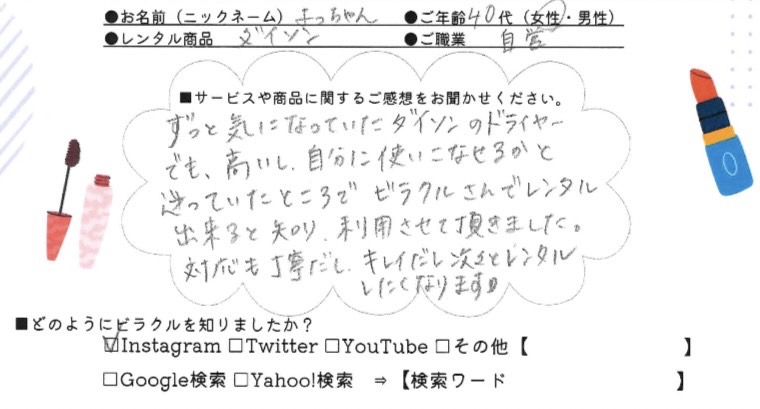 ●お名前（ニックネーム）まっちゃん ●ご年齢40代（女性・男性）
●レンタル商品 ダイソン ●ご職業 自営
■サービスや商品に関するご感想をお聞かせください。
ずっと気になっていたダイソンのドライヤー
でも、高いし、自分に使いこなせるかと
迷っていたところで ビラクルさんでレンタル
出来ると知り、利用させて頂きました。
対応も丁寧だし、キレイだし次々とレンタル
したくなります
■どのようにビラクルを知りましたか？
☑Instagram □Twitter □YouTube □その他【 】
□Google検索 □Yahoo!検索 ⇒【検索ワード 】